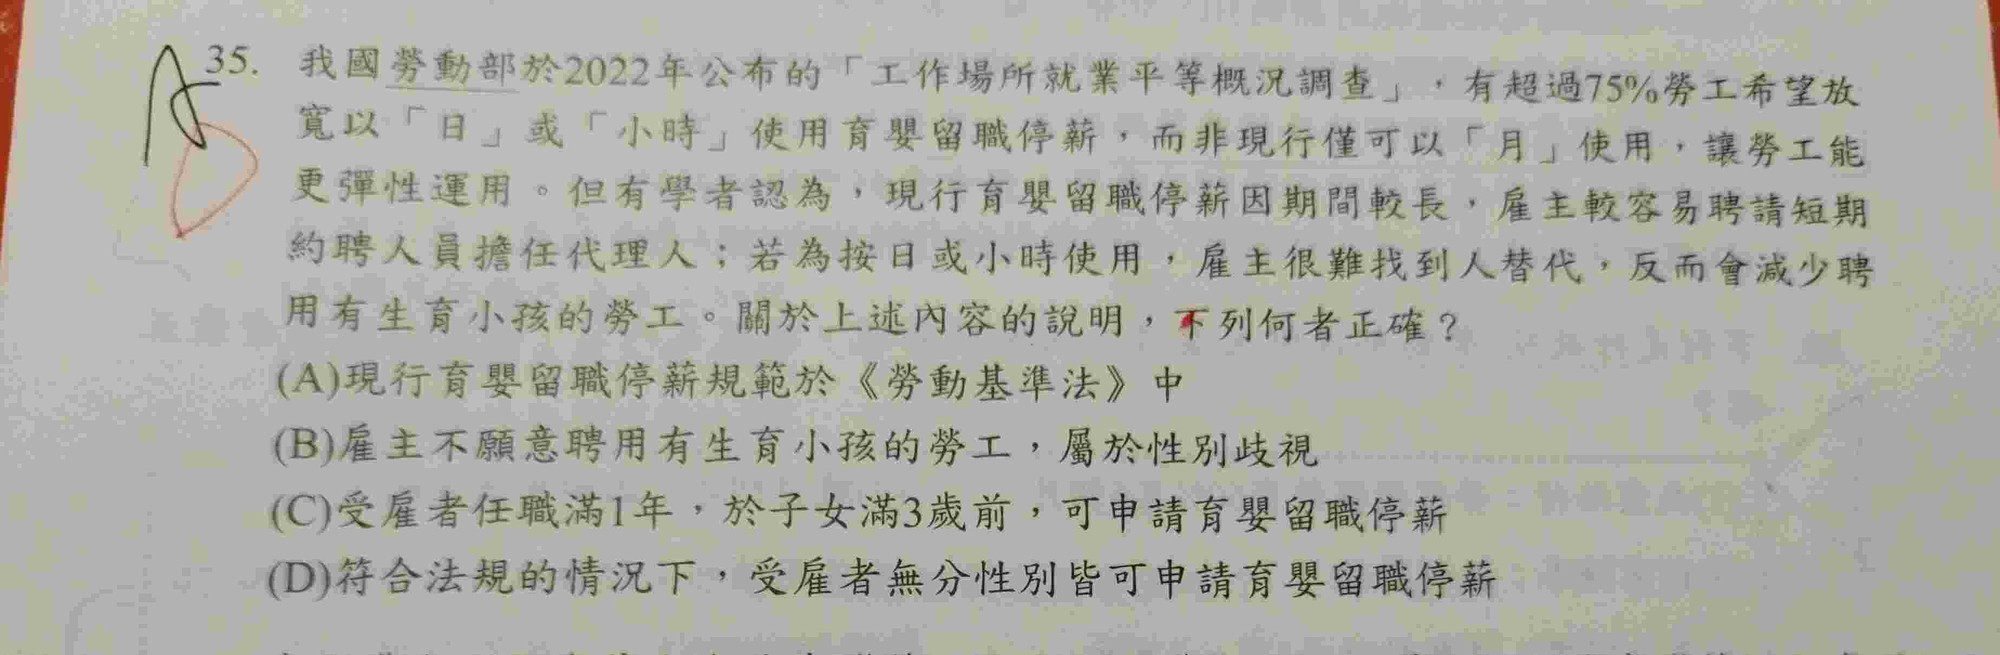 A
D
35. 我國勞動部於2022年公布的「工作場所就業平等概況調查」，有超過75%勞工希望放
寬以「日」或「小時」使用育嬰留職停薪，而非現行僅可以「月」使用，讓勞工能
更彈性運用。但有學者認為，現行育嬰留職停薪因期間較長，雇主較容易聘請短期
約聘人員擔任代理人；若為按日或小時使用，雇主很難找到人替代，反而會減少聘
用有生育小孩的勞工。關於上述內容的說明，下列何者正確？
(A)現行育嬰留職停薪規範於《勞動基準法》中
(B)雇主不願意聘用有生育小孩的勞工，屬於性別歧視
(C)受雇者任職滿1年，於子女滿3歲前，可申請育嬰留職停薪
(D)符合法規的情況下，受雇者無分性別皆可申請育嬰留職停薪